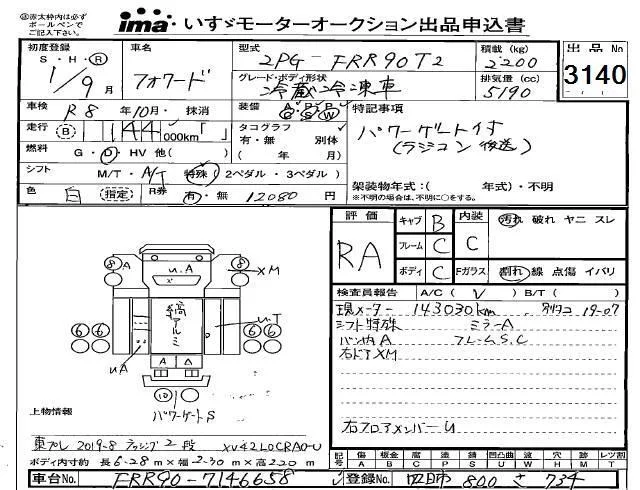 赤太枠内は必ずボールペンでご記入下さい。
ima いすゞモーターオークション出品申込書
初度登録 S・H・R 1/9月
車名 フォワード
型式 2PG-FRR90T2
積載(kg) 2200
出品No 3140
グレード・ボディ形状 冷蔵冷凍車
排気量(cc) 5190
車検 R8年10月・抹消
装備
特記事項
走行 (B) 144000km「 」
タコグラフ 有・無 別体 ( 年 月)
パワーゲート付
(ラジコン後送)
燃料 G・D・HV 他( )
シフト M/T・A/T 特殊(2ペダル・3ペダル)
架装物年式:( 年式)・不明
※不明の場合は、不明に○をする。
色 白 (指定) R券 有・無 12080円
評価 RA
キャブ B 内装 C 汚れ 破れ ヤニ スレ
フレーム C
ボディ C Fガラス 割れ 線 点傷 イバリ
検査員報告 A/C( V ) B/T( )
現メーター 143030km 19-07
シフト特殊 ミラーA
バン内A フレームS.C
右ドアXM
右フロアメンバーU
8 A u.A 8 XM
縞アルミ
6 6 uT 6 6
uA A A
10
パワーゲートS
上物情報
東プレ 2019-8 ラッシング2段 XV42LOCRA0-U
ボディ内寸約 長6.28m×幅2.30m×高2.20m
記号 傷A 板金 腐C 塗P 錆S 凹凸曲U 要W 穴H 跡M レツ割T
車台No. FRR90-7146658
登録No. 四日市 800 さ 734